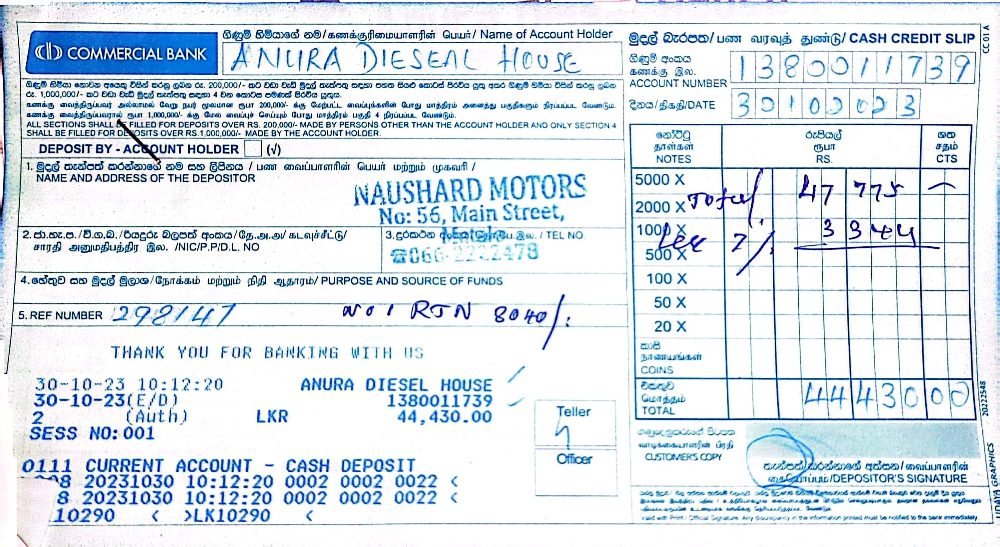 COMMERCIAL BANK
ගිණුම් හිමියාගේ නම/கணக்குரிமையாளரின் பெயர்/ Name of Account Holder
ANURA DIESEAL HOUSE
මුදල් බැරපත/பண வரவுத் துண்டு/ CASH CREDIT SLIP
CC 01 A
ගිණුම් අංකය
கணக்கு இல.
ACCOUNT NUMBER
1380011739
දිනය/திகதி/DATE
30102023
ALL SECTIONS SHALL BE FILLED FOR DEPOSITS OVER RS. 200,000/- MADE BY PERSONS OTHER THAN THE ACCOUNT HOLDER AND ONLY SECTION 4
SHALL BE FILLED FOR DEPOSITS OVER RS.1,000,000/- MADE BY THE ACCOUNT HOLDER.
DEPOSIT BY - ACCOUNT HOLDER (√)
1. මුදල් තැන්පත් කරන්නාගේ නම සහ ලිපිනය / பண வைப்பாளரின் பெயர் மற்றும் முகவரி /
NAME AND ADDRESS OF THE DEPOSITOR
NAUSHARD MOTORS
No: 56, Main Street,
☎066-2222478
2. ජා.හැ.ප. / වි.ග.බ. / රියදුරු බලපත් අංකය/தே.அ.அ/ கடவுச்சீட்டு/
சாரதி அனுமதிபத்திர இல. /NIC/P.P/D.L. NO
3. දුරකථන / TEL NO
4. හේතුව සහ මුදල් මූලාශ්‍ර/நோக்கம் மற்றும் நிதி ஆதாரம்/ PURPOSE AND SOURCE OF FUNDS
5. REF NUMBER 298147
RTN 8040/.
නෝට්ටු
தாள்கள்
NOTES
රුපියල්
ரூபா
RS.
ශත
சதம்
CTS
5000 X
Total 47 775 —
2000 X
1000 X
Less 7% 3344
500 X
100 X
50 X
20 X
කාසි
நாணயங்கள்
COINS
එකතුව
மொத்தம்
TOTAL
4443000
THANK YOU FOR BANKING WITH US
30-10-23 10:12:20 ANURA DIESEL HOUSE
30-10-23(E/D) 1380011739
2 (Auth) LKR 44,430.00
SESS NO:001
0111 CURRENT ACCOUNT - CASH DEPOSIT
8 20231030 10:12:20 0002 0002 0022 <
8 20231030 10:12:20 0002 0002 0022 <
LK10290 < >LK10290 <
Teller
Officer
ගනුදෙනුකරුගේ පිටපත
வாடிக்கையாளரின் பிரதி
CUSTOMER'S COPY
තැන්පත් කරන්නාගේ අත්සන/வைப்பாளரின்
கையொப்பம்/DEPOSITOR'S SIGNATURE
Valid with Print / Official Signature. Any discrepancy in the information printed must be notified to the bank immediately
20222548